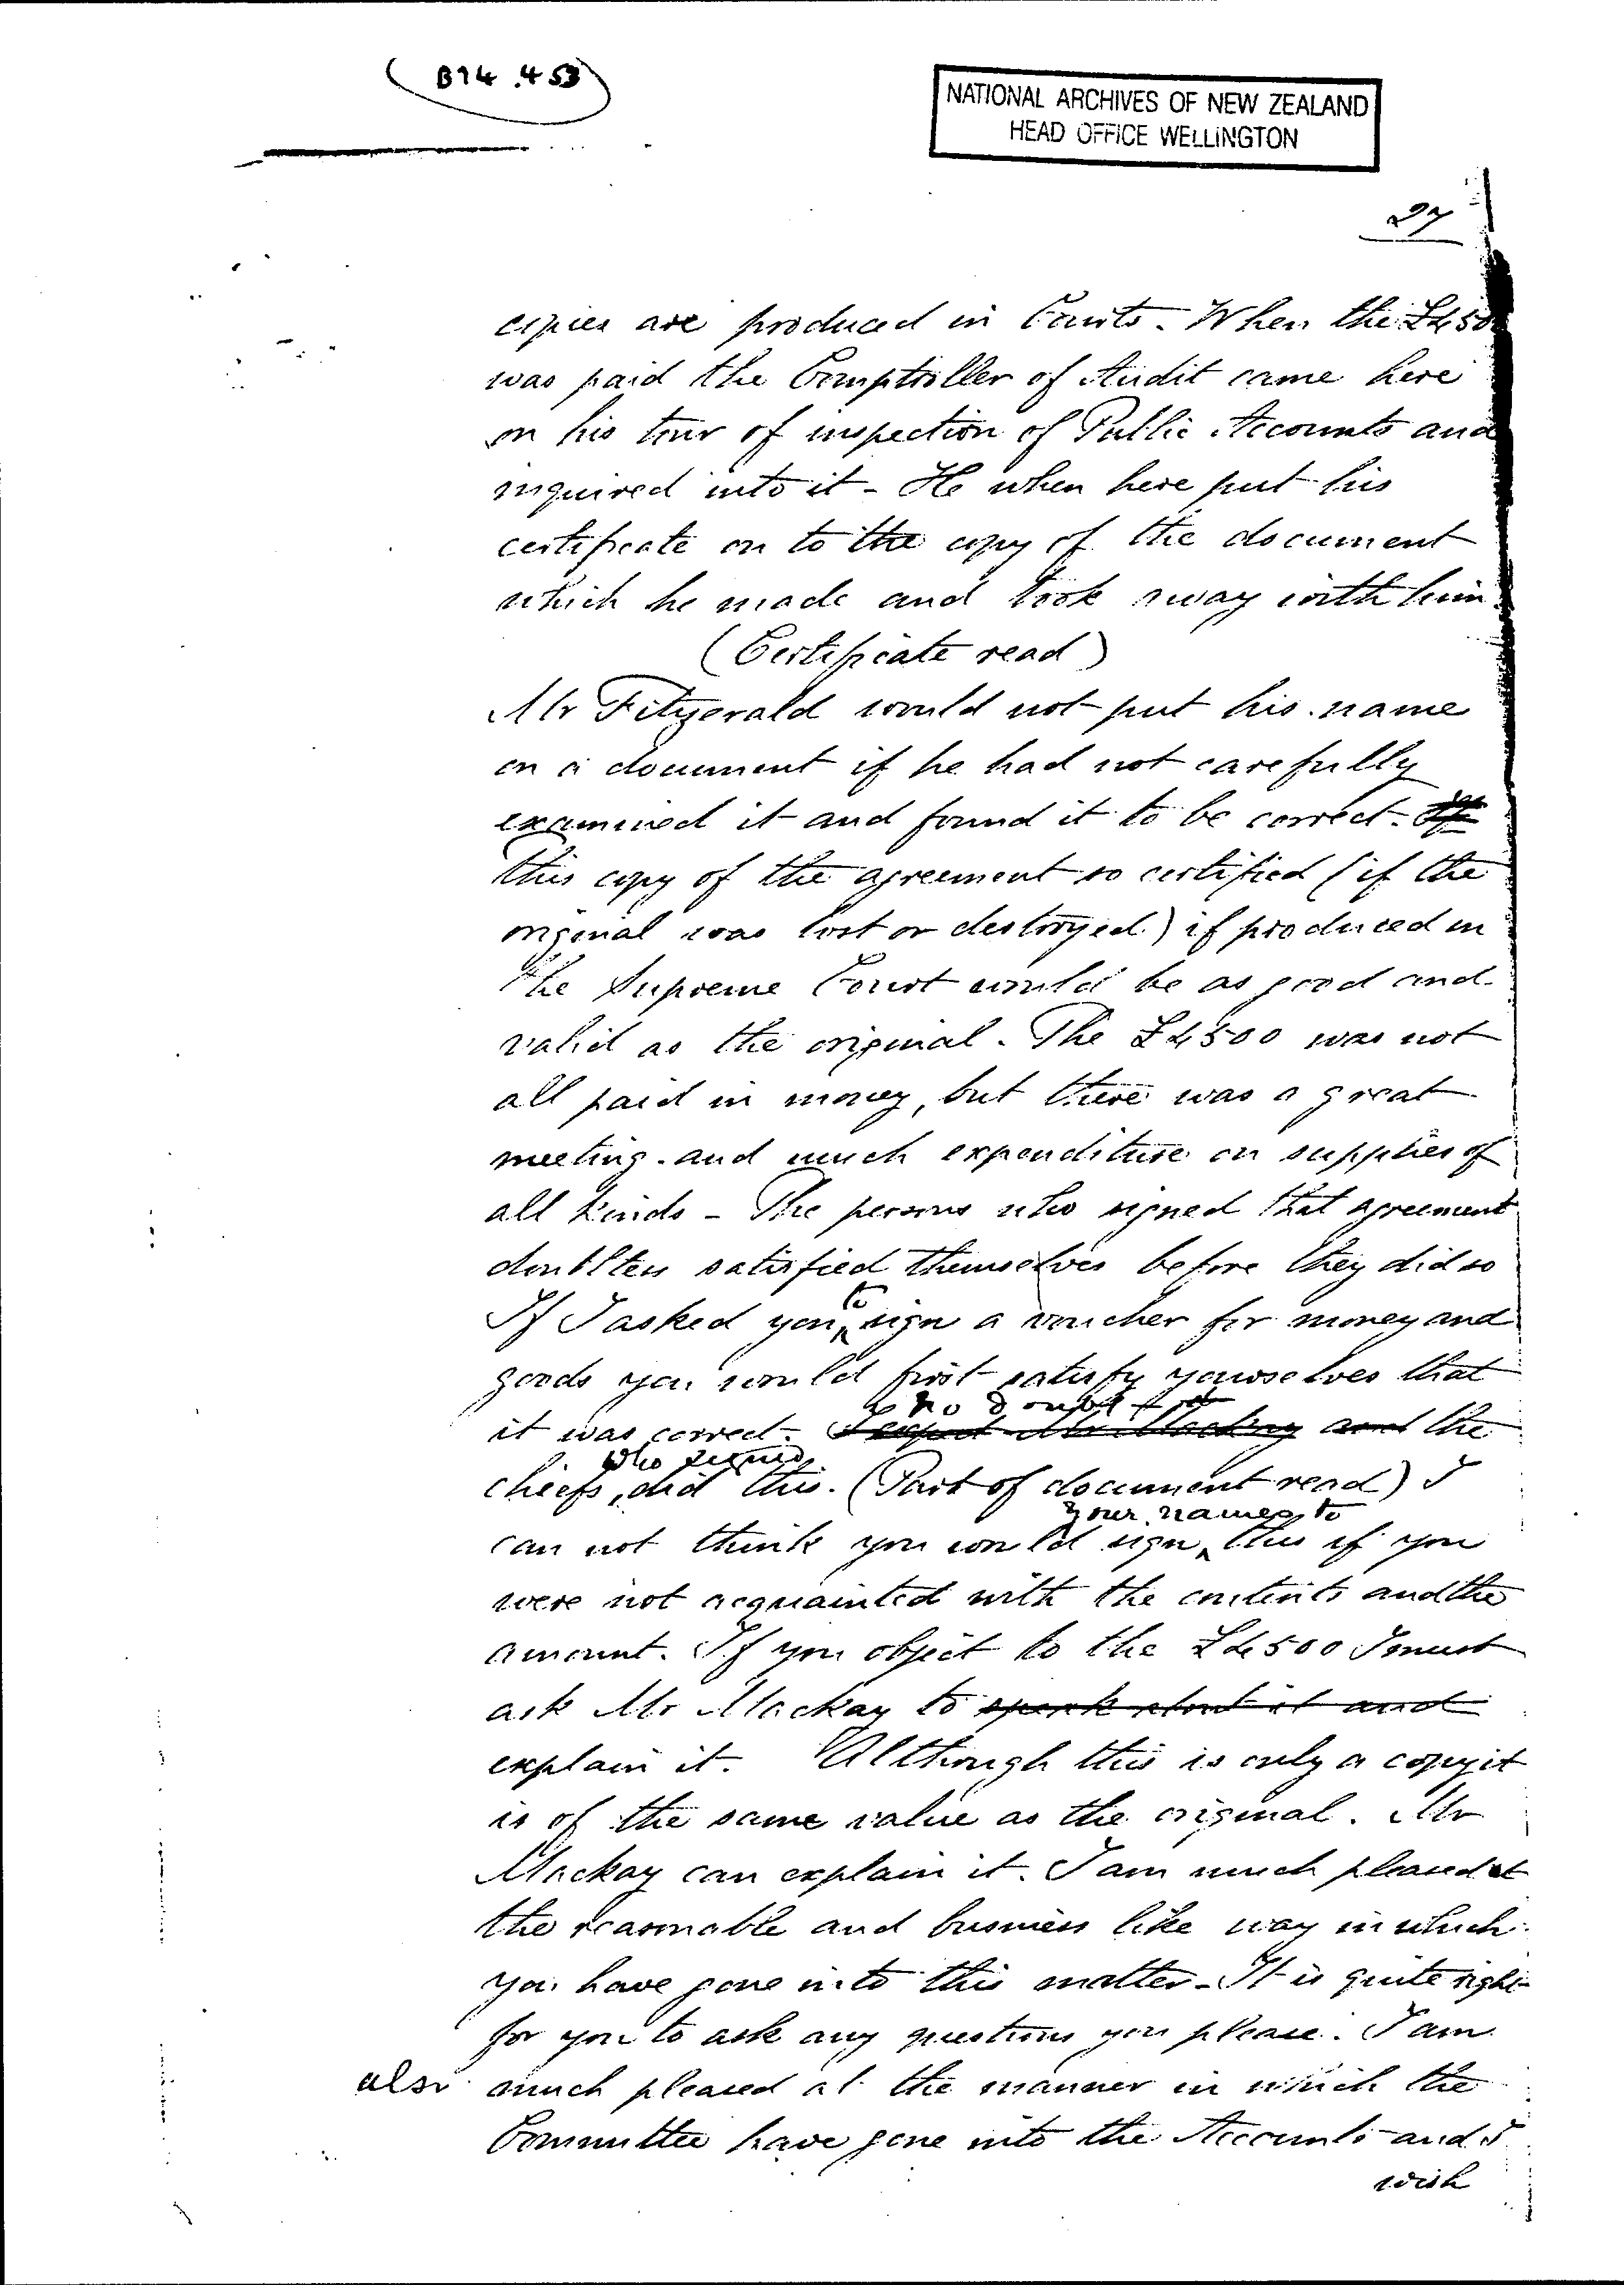 B94.453
NATIONAL ARCHIVES OF NEW ZEALAND
HEAD OFFICE WELLINGTON
27
copies are produced in Courts. When the £450
was paid the Comptroller of Audit came here
on his tour of inspection of Public Accounts and
inquired into it - He when here put his
certificate on to the copy of the document
which he made and took away with him.
(Certificate read)
Mr Fitzgerald would not put his name
on a document if he had not carefully
examined it and found it to be correct.
this copy of the agreement so certified (if the
original was lost or destroyed) if produced in
the Supreme Court would be as good and
valid as the original. The £4500 was not
all paid in money, but there was a great
meeting and much expenditure on supplies of
all kinds - The persons who signed that agreement
doubtless satisfied themselves before they did so
If I asked you to sign a voucher for money and
goods you would first satisfy yourselves that
no doubt
it was correct. I expect Mr Mackay and the
who signed
chiefs, did this. (Part of document read) I
your names to
can not think you would sign this if you
were not acquainted with the contents and the
amount. If you object to the £4500 I must
ask Mr Mackay to speak about it and
explain it. Although this is only a copy it
is of the same value as the original. Mr
Mackay can explain it. I am much pleased at
the reasonable and business like way in which
you have gone into this matter - It is quite right
for you to ask any questions you please. I am
also much pleased at the manner in which the
Committee have gone into the Accounts and I
wish